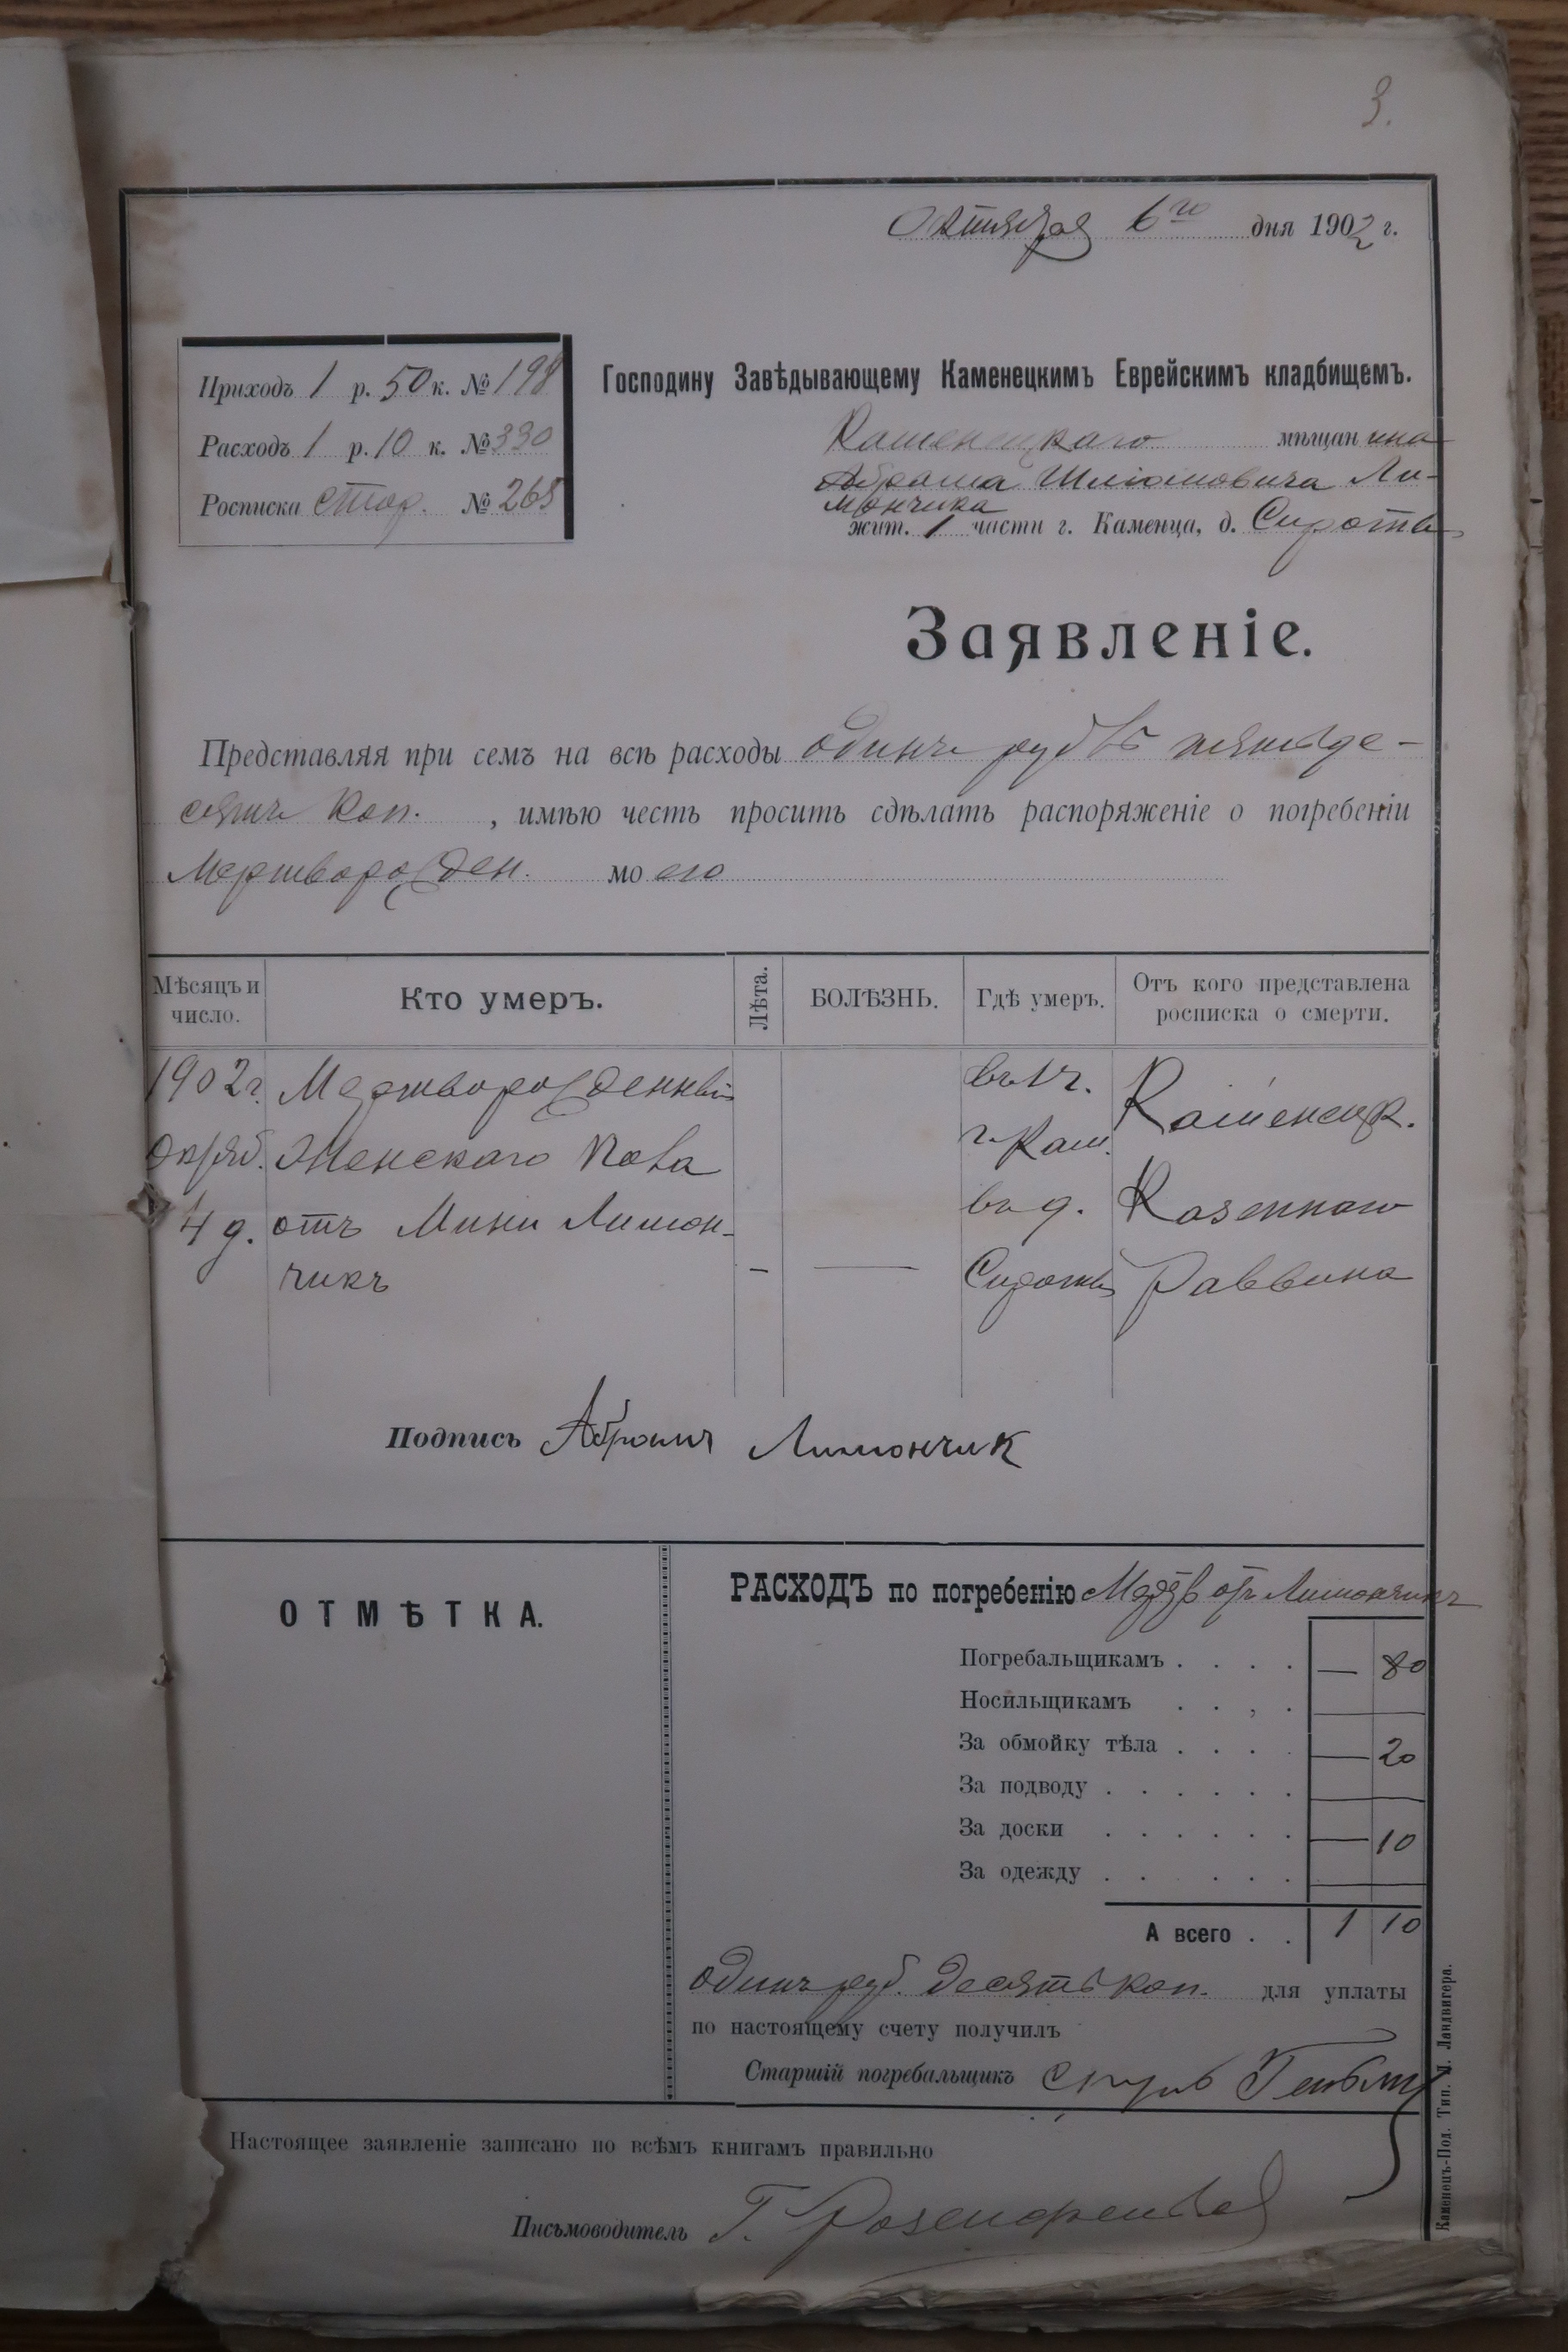 3.
Октября 6го дня 1902 г.
Приходъ 1 р. 50 к. № 198
Расходъ 1 р. 10 к. № 330
Росписка стор. № 265
Господину Завѣдывающему Каменецкимъ Еврейскимъ кладбищемъ.
Каменецкаго мѣщанина
Абрама Шліомовича Ли-
мончика
жит. 1 части г. Каменца, д. Сироты
Заявленіе.
Представляя при семъ на всѣ расходы одинъ рубль пятьде-
сятъ коп. , имѣю честь просить сдѣлать распоряженіе о погребеніи
Мертворожден. моего
Мѣсяцъ и число. Кто умеръ. Лѣта. БОЛѢЗНЬ. Гдѣ умеръ. Отъ кого представлена росписка о смерти.
1902 г. Мертворожденный въ 1 ч. Каменецк.
Октяб. Женскаго пола г. Кам. Казеннаго
4 д. отъ Мини Лимон- въ д. Раввина
чикъ — — Сироты
Подпись Абрамъ Лимончик
ОТМѢТКА.
РАСХОДЪ по погребенію отъ Лимончикъ
Погребальщикамъ . . . . — 80
Носильщикамъ . . , .
За обмойку тѣла . . . . — 20
За подводу . . . . . .
За доски . . . . . . — 10
За одежду . . . . . .
А всего . . 1 10
одинъ руб. десять коп. для уплаты
по настоящему счету получилъ
Старшій погребальщикъ
Настоящее заявленіе записано по всѣмъ книгамъ правильно
Письмоводитель Г. Розенфельд
Каменецъ-Под. Тип. Л. Ландвигера.